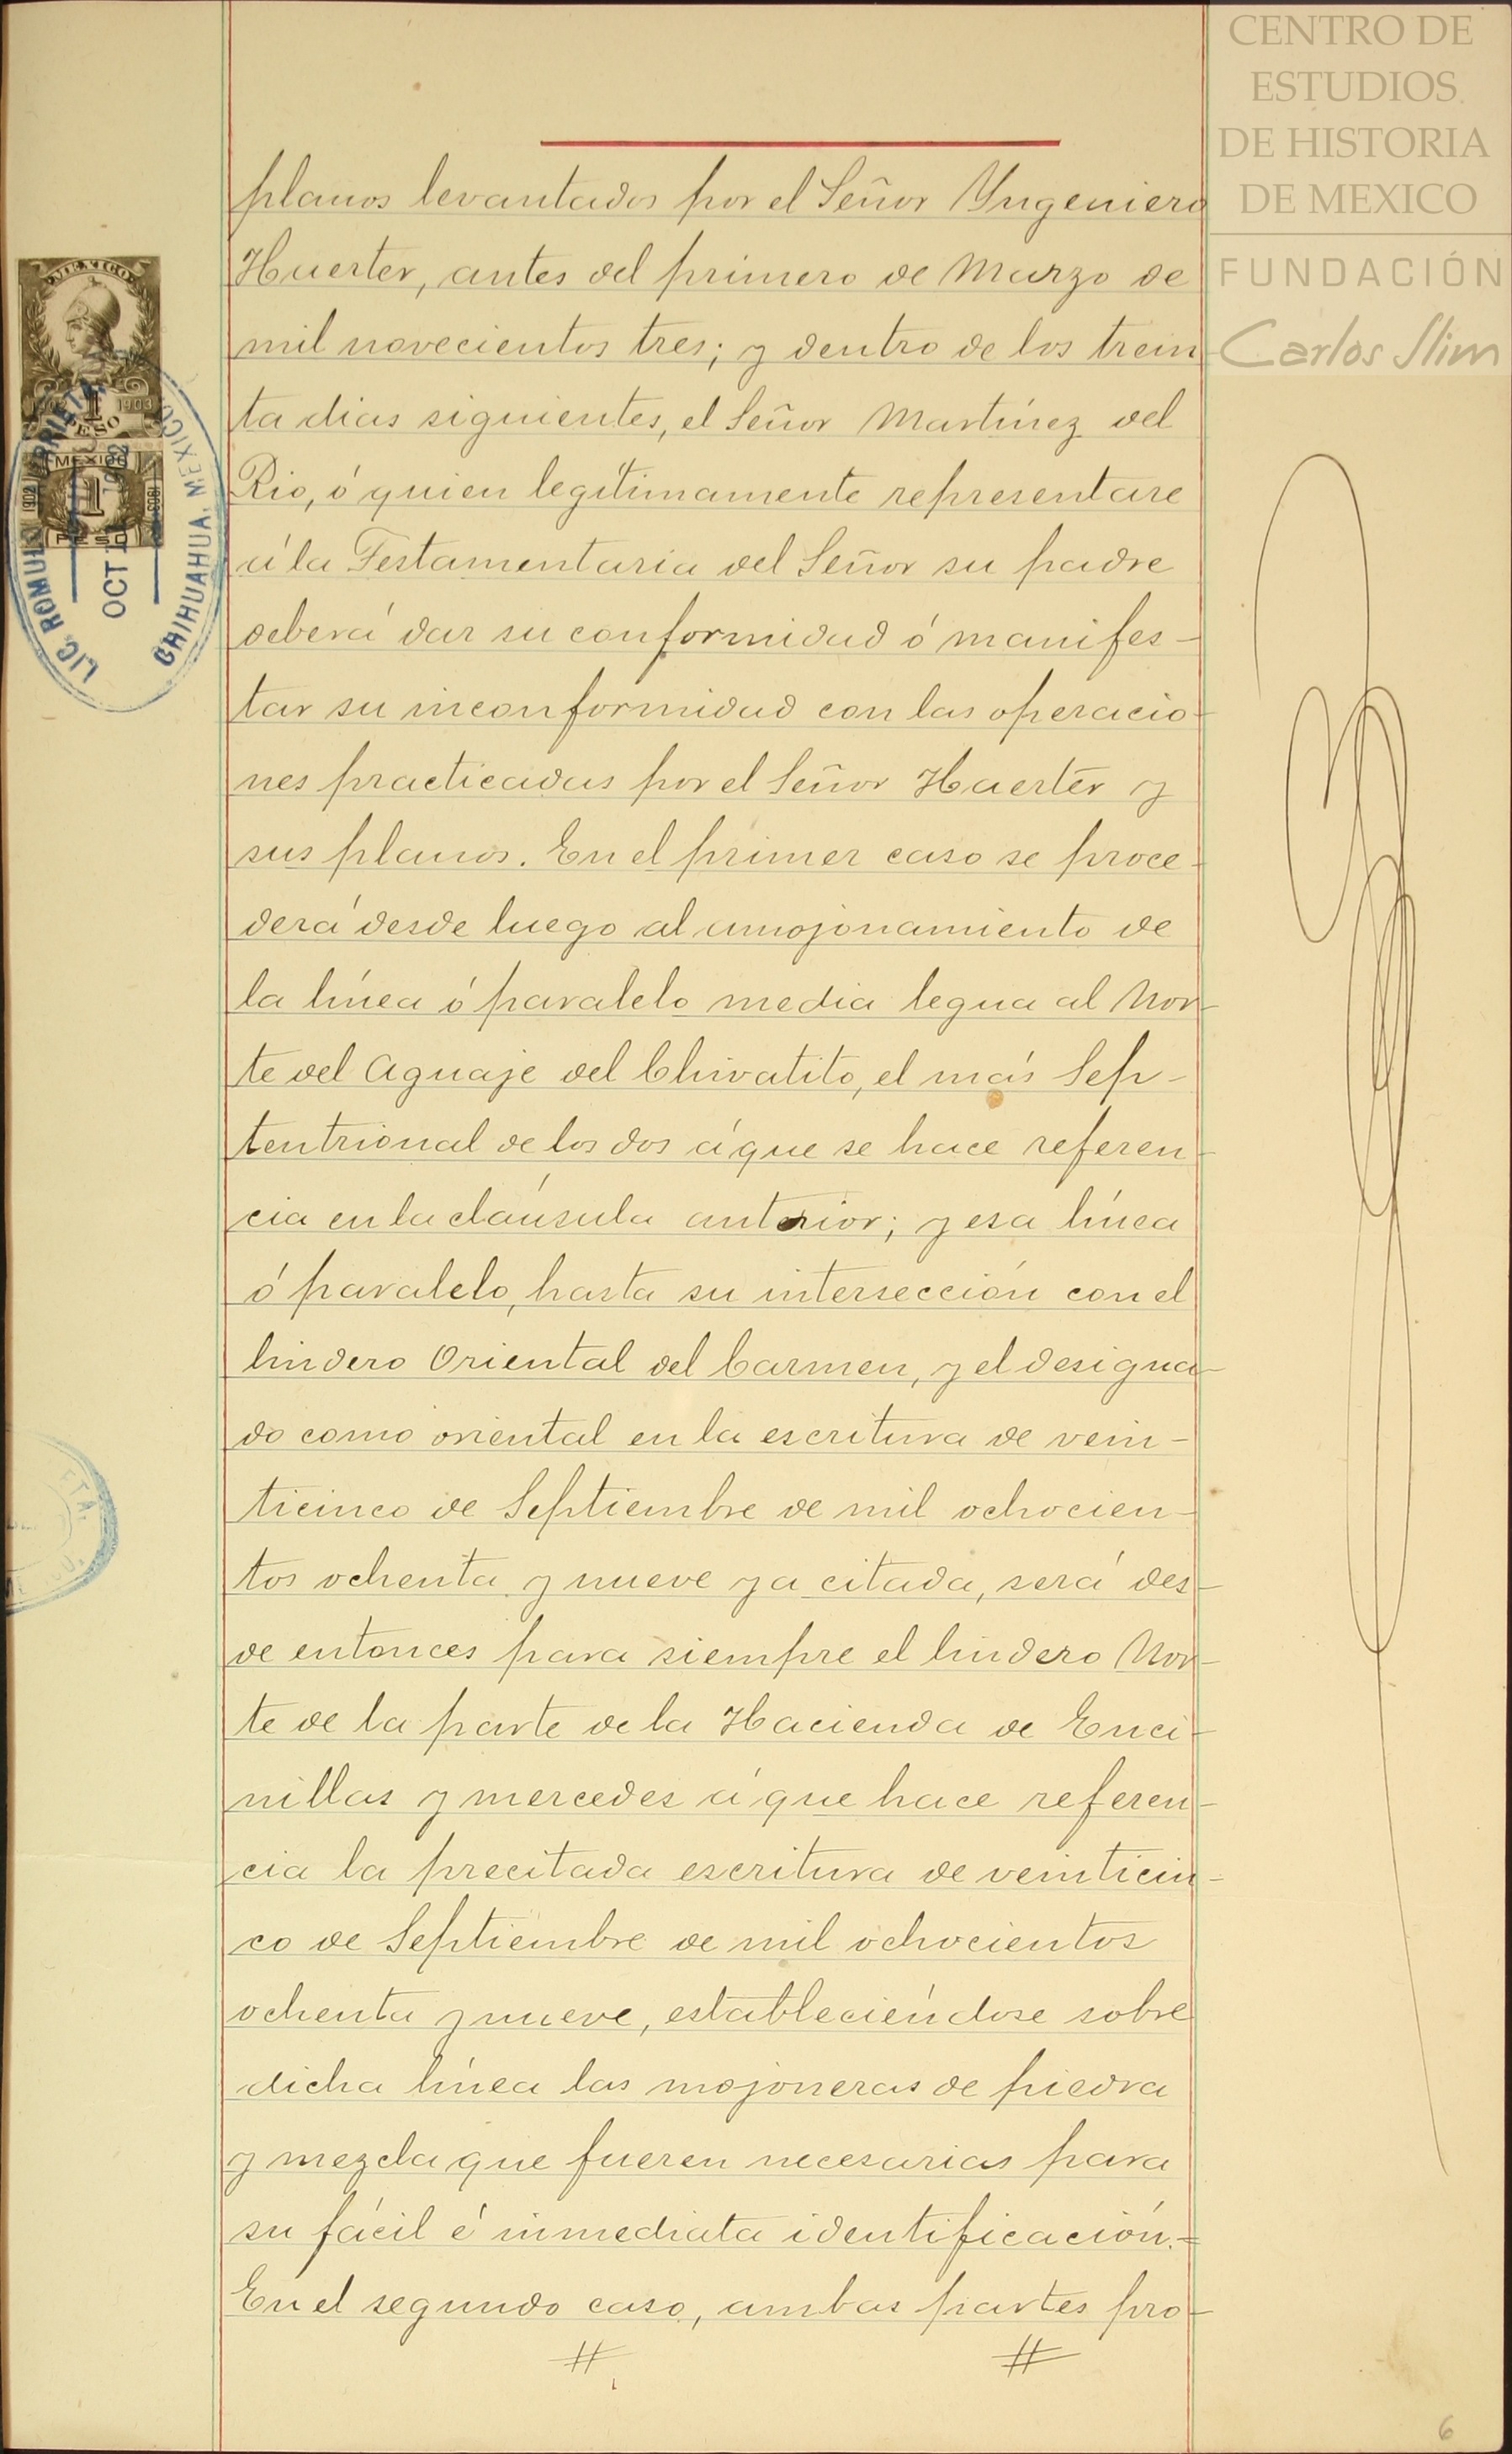 CENTRO DE
ESTUDIOS
DE HISTORIA
DE MEXICO
FUNDACIÓN
Carlos Slim
planos levantados por el Señor Yngeniero
Huerter, antes del primero de Marzo de
mil novecientos tres; y dentro de los trein
ta dias siguientes, el Señor Martínez del
Rio, ó quien legítimamente representare
á la Testamentaria del Señor su padre
deberá dar su conformidad ó manifes-
tar su inconformidad con las operacio-
nes practicadas por el Señor Huerter y
sus planos. En el primer caso se proce-
derá desde luego al amojonamiento de
la línea ó paralelo media legua al Nor-
te del Aguaje del Chivatito, el más Sep-
tentrional de los dos á que se hace referen-
cia en la claúsula anterior; y esa línea
ó paralelo, hasta su intersección con el
lindero Oriental del Carmen, y el designa-
do como oriental en la escritura de vein-
ticinco de Septiembre de mil ochocien-
tos ochenta y nueve ya citada, será des-
de entonces para siempre el lindero Nor-
te de la parte de la Hacienda de Enci-
nillas y mercedes á que hace referen-
cia la precitada escritura de veinticin-
co de Septiembre de mil ochocientos
ochenta y nueve, estableciéndose sobre
dicha línea las mojoneras de piedra
y mezcla que fueren necesarias para
su fácil é inmediata identificación.=
En el segundo caso, ambas partes pro-
MEXICO
1903
1
PESO
MEXICO
1902
1
1903
PESO
LIC. ROMULO
OCT
CHIHUAHUA, MEXICO
ETA.
6